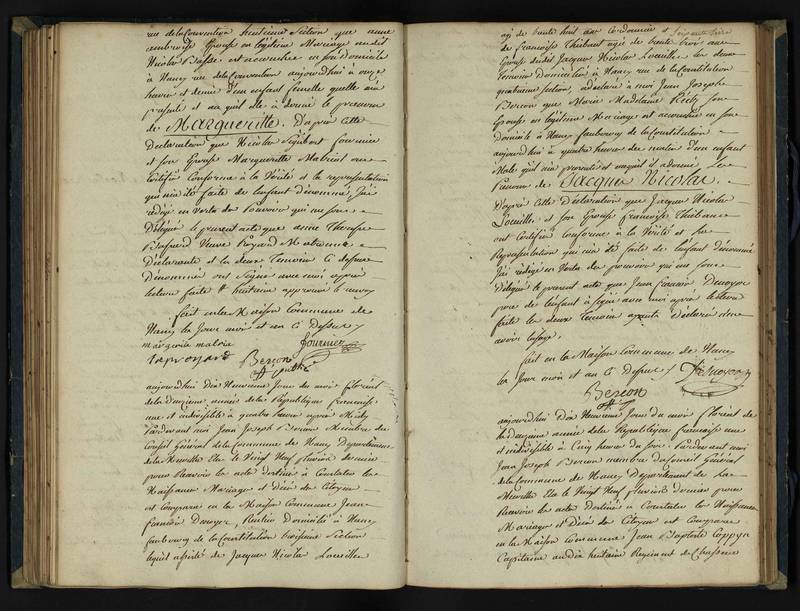 rue de la Convention huitieme Section que anne
ambroise Epouse en légitime Mariage audit
Nicolas Basse est accouchée en son domicile
à Nancy rue de la Convention aujourd'hui à onze
heures et demie d'un enfant femelle quelle nous
présente et auquel elle à donné le prenom
de Margueritte. D'après cette
Déclaration que Nicolas Sigibert fournier
et son Epouse Margueritte Matriot ont
Certifié Conforme à la Vérité et la représentation
qui m'a été faite de l'enfant dénommé, j'ai
rédigé en Vertu du Pouvoir qui me sont
Délégué le présent acte que anne Therese
Veuve Royard Matronne
Déclarante et les deux temoins Ci dessus
Dénommés ont Signé avec moi après
lecture faite
fait en la Maison Commune de
Nancy les Jour mois et an Ci Dessus
margueria matrio fournier
la proyard Berson
aujourd'hui Dix Neuvieme Jour du mois floréal
de la Deuxieme année de la République francaise
une et indivisible à quatre heures après Midy
Pardevant moi Jean Joseph Berson Membre du
Conseil Général de la Commune de Nancy Département
de la Meurthe Elu le Vingt Neuf pluviose dernier
pour Recevoir les actes destinés à Constater les
Naissances Mariages et Décès des Citoyens
est comparu en la Maison Commune Jean
francois Denoyer, Rentier Domicilié à Nancy
faubourg de la Constitution troisieme Section
lequel assisté de Jacques Nicolas Loeuillet
agé de trente huit ans Cordonnier et
de francoise Thiebaut agée de trente trois ans
Epouse dudit Jacques Nicolas Loeuillet les deux
temoins Domiciliés à Nancy rue de la Constitution
quatrieme section, a déclaré à moi Jean Joseph
Berson que Marie Madelaine Son
Epouse en légitime Mariage est accouchée en Son
Domicile à Nancy faubourg de la Constitution
aujourd'hui à quatre heures du matin d'un enfant
Male qu'il m'a présenté et auquel il a donné les
Prenoms de Jacques Nicolas.
D'après cette Déclaration que Jacques Nicolas
Loeuillet et son Epouse francoise Thiebaut
ont Certifié Conforme à la Vérité et la
Représentation qui m'a été faite de l'enfant dénommé
J'ai rédigé en Vertu des pouvoirs qui me sont
Délégués le présent acte que Jean francois Denoyer
pere de l'enfant à signé avec moi après lecture
faite les deux temoins ayants declaré ne
avoir l'usage.
fait en la Maison Commune de Nancy
les Jour mois et an Ci Dessus
Berson
aujourd'hui Dix Neuvieme Jour du mois floréal de
la Deuxieme année de la République francaise une
et indivisible à Cinq heures du soir Pardevant moi
Jean Joseph Berson membre du Conseil Général
de la Commune de Nancy Département de la
Meurthe Elu le Vingt Neuf pluviose dernier pour
Recevoir les actes destinés à Constater les Naissances
Mariages et Décès des Citoyens est Comparu
en la Maison Commune Jean Baptiste Coppyn
Capitaine au Dix huitaine Régiment de Chasseurs